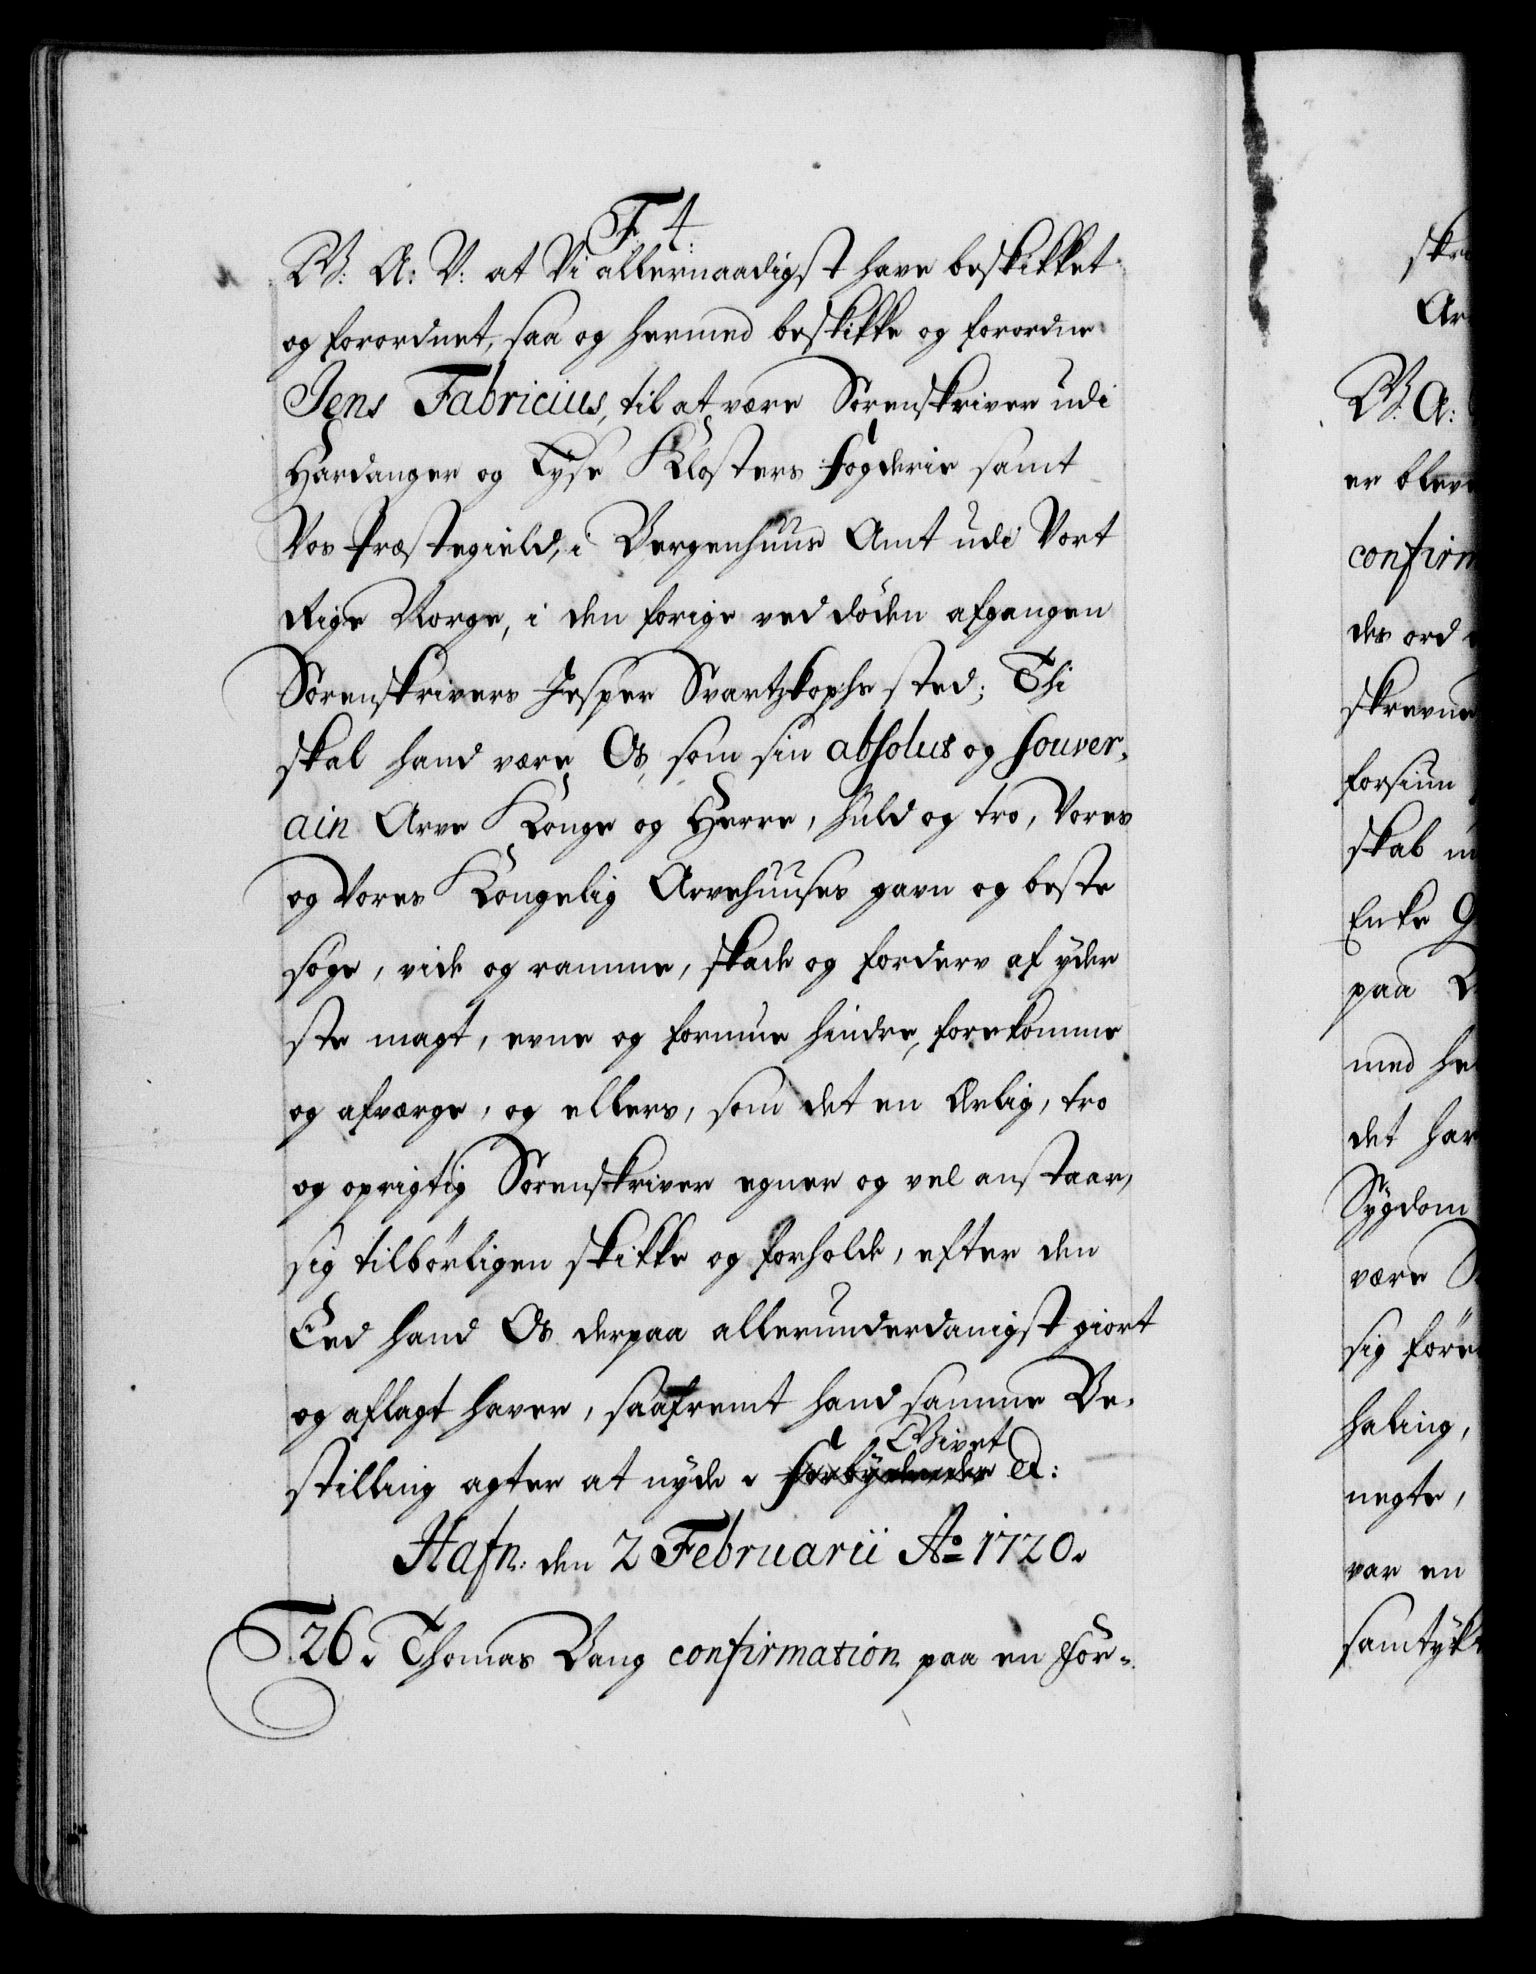 F 4.
W: A: V: at Vi allernaadigst have beskikket
og forordnet, saa og hermed beskikke og forordne
Jens Fabricius, til at være Sorenskriver udi
Hardanger og Lyse Klosters fogderie samt
Vos Præstegield, i Bergenhuus Amt udi Vort
Rige Norge, i den forige ved døden afgangen
Sorenskrivers Jesper Svartzkophs sted; Thi
skal hand være Os, som sin absolut og souver-
ain Arve Konge og Herre, huld og tro, Vores
og Vores Kongelig Arvehuuses gavn og beste
søge, vide og ramme, skade og forderv af yder
ste magt, evne og formue hindre, forekomme
og afværge, og ellers, som det en Ærlig, tro
og oprigtig Sorenskriver egner og vel anstaar,
sig tilbørligen skikke og forholde, efter den
Eed hand Os derpaa allerunderdanigst giort
og aflagt haver, saafremt hand samme Be-
stilling agter at nyde. forbydendes Givet &:
Hafn: den 2 Februarii Ao 1720.
26. Thomas Bang confirmation paa en for-
skri
Ar
W: A:
er blev
confirm
des ord
skrevne
forsiun
skab u
Enke
paa
med he
det har
Sygdom
være
sig føre
haling,
negte,
var en
samtykt